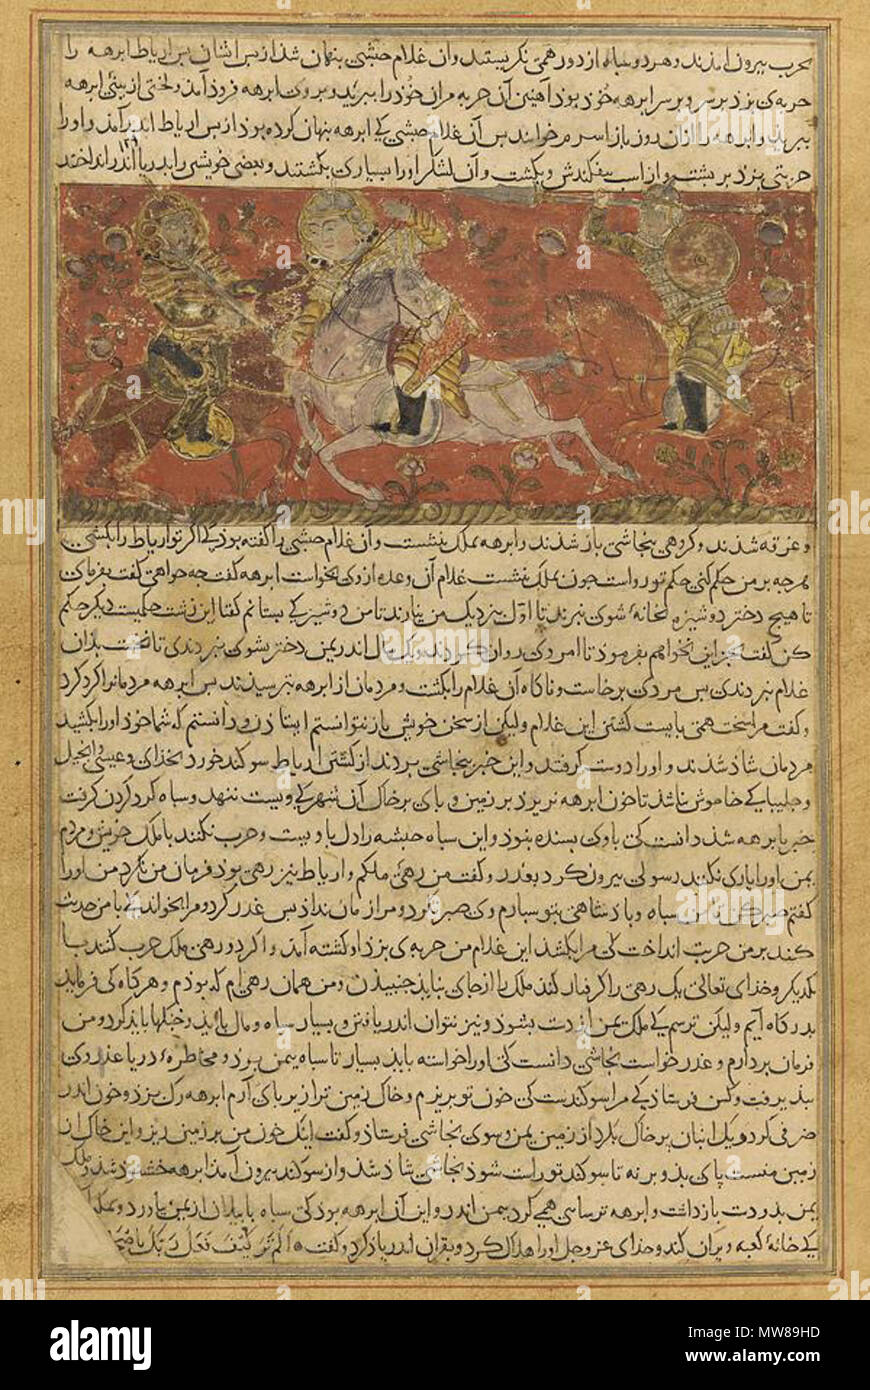 بحرب بیرون آمدند و هر دو سپاه از دور همی نکریستند و آن غلام حبشی پنهان شذ از پس ایشان پس اریاط ابرهه را
حربه‌ی بزد بر سر و بر سر ابرهه خوذ بوذ آهنین آن حربه مران خوذ را ببرید و بروی ابرهه فروذ آمذ و لختی از بینی ابرهه
ببرید و ابرهه را از آن روز باز اشرم خوانند پس آن غلام حبشی کی ابرهه پنهان کرده بوذ از پس اریاط اندر آمذ و او را
حربتی بزد بر پشت و از اسب بیفکندش و بکشت و آن لشکر او را بسیاری بکشتند و بعضی خویشتن را بدریا اندر انداختند
و غرقه شذند و کروهی بنجاشی باز شذند و ابرهه بملک بنشست و آن غلام حبشی را گفته بوذ کی اکر تو اریاط را بکشی
هر چه بر من حکم کنی حکم تو رواست چون بملک بنشست غلام آن وعده از وی بخواست ابرهه گفت چه خواهی گفت بفرمای
تا هیچ دختر دوشیزه بخانهٔ شوی نبرند تا اول بنزدیک من نیارند تا من دوشیزکی بستانم گفتا این زشت حکمیست دیکر حکم
کن گفت بجز این نخواهم بفرموذ تا امر وی روان کردند و یک سال اندر یمن دختر بشوی نبردندی تا نخست بذان
غلام نبردندی پس مردی برخاست و ناکاه آن غلام را بکشت و مردمان از ابرهه بترسیدند پس ابرهه مردمانرا کرد کرد
و گفت مرا سخت همی بایست کشتن این غلام ولیکن از سخن خویش باز نتوانستم ایستاذن و دانستم که شما خوذ او را بکشید
مردمان شاذ شذند و او را دوست کرفتند و این خبر بنجاشی بردند از کشتن اریاط سوکند خورد بخذای و عیسی و انجیل
و چلیپا کی خاموش نباشذ تا خون ابرهه نریزد بر زمین و پای بر خاک آن شهر کی ویست ننهد و سپاه کرد کردن کرفت
خبر بابرهه شذ دانست کی با وی بسنده نبوذ و این سپاه حبشه را دل با ویست و حرب نکنند با ملک خویش و مردم
یمن او را یاری نکنند رسولی بیرون کرد بعذر و گفت من رهی ملکم و اریاط نیز رهی بوذ فرمان من نکرد من او را
گفتم صبر کن تا من سپاه و پاذشاهی بتو سپارم وی صبر نکرد و مرا زمان نداذ پس غدر کرد و مرا بخواند کی با من حدیث
کند بر من حربت انداخت کی مرا بکشذ این غلام من حربه‌ی بزد او کشته آمذ و اکر دو رهی ملک حرب کنند با
یکدیکر و خذای تعالی یک رهی را کرفتار کند ملک را از جای نباید جنبیذن و من همان رهی‌ام که بوذم و هر کاه کی فرماید
بدرکاه آیم ولیکن ترسم کی ملک یمن از دست بشوذ و نیز نتوان اندر یافتن و بسیار سپاه و مال بایذ و جنکها باید کرد و من
فرمان بردارم و عذر خواست نجاشی دانست کی او را خواسته باید بسیار تا سپاه بیمن بوذ و مخاطرهٔ دریا عذر وی
بپذیرفت و کس فرستاذ کی مرا سوکندست کی خون تو بریزم و خاک زمین ترا زیر پای آرم ابرهه رک بزد و خون اندر
ظرفی کرد و یک انبان پر خاک بکرد از زمین یمن و سوی نجاشی فرستاذ و گفت اینک خون من بر زمین ریز و این خاک از
زمین منست پای بذو بر نه تا سوکند تو راست شوذ نجاشی شاذ شذ و از سوکند بیرون آمذ ابرهه خشنوذ شذ و ملک
یمن بذو دست بازداشت و ابرهه ترسایی همی کرد بیمن اندر و این آن ابرهه بوذ کی سپاه با پیلان از یمن بیاورد و بمکه آمد
کی خانهٔ کعبه ویران کند و خذای عز و جل او را هلاک کرد و بقران اندر یاذ کرد و گفت أَلَمْ تَرَ كَيْفَ فَعَلَ رَبُّكَ بِأَصْحَابِ
alamy
Image ID: MW89HD
www.alamy.com